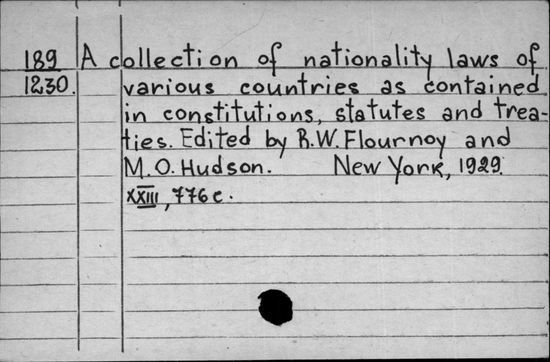 189 A collection of nationality laws of
1230. various countries as contained
in constitutions, statutes and trea-
ties. Edited by R.W. Flournoy and
M.O. Hudson. New York, 1929.
XXIII, 776 c.